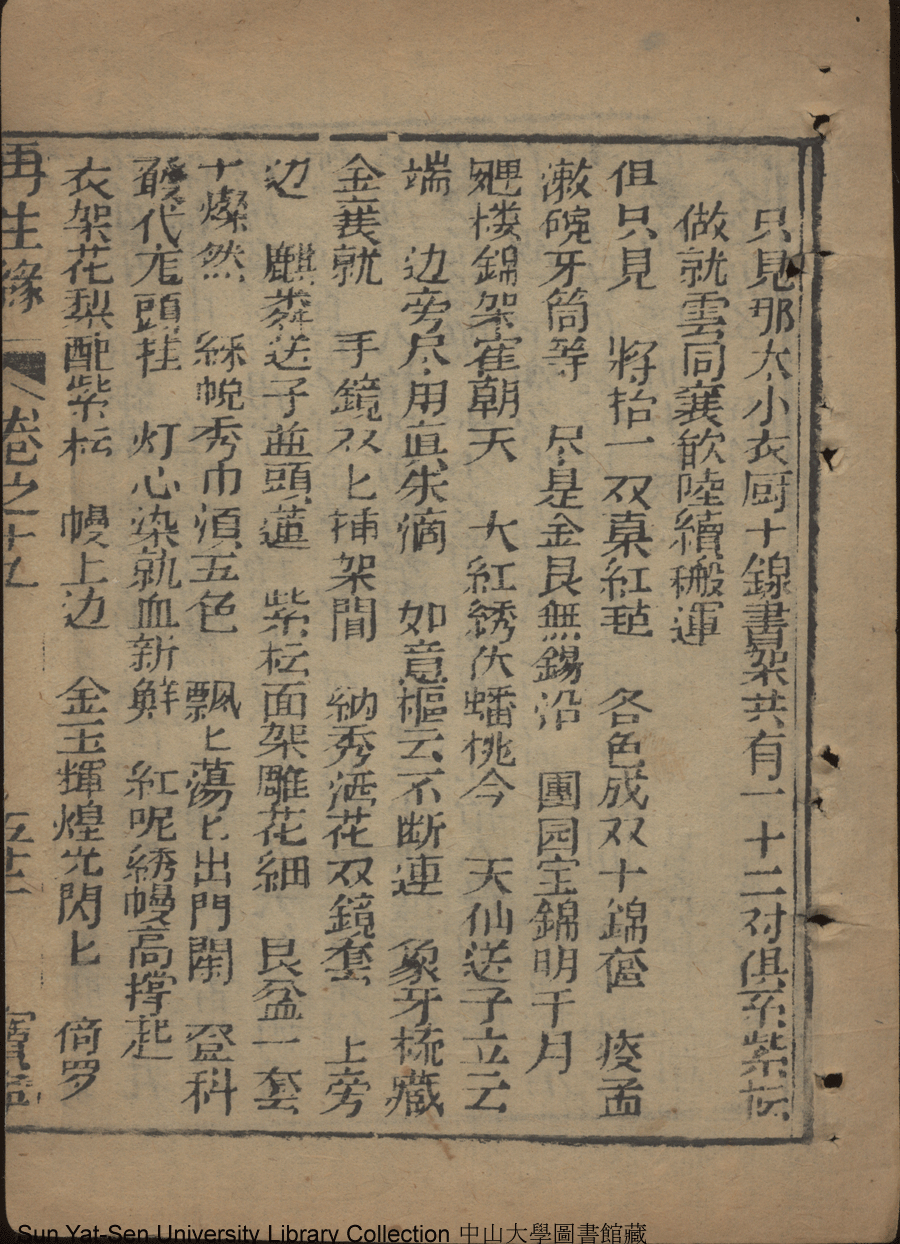 只見那大小衣厨十錦書架共有一十二对俱系紫枟
做就雲同襄歆陸續搬運
但只見　將抬一双桌紅毡　各色成双十錦奩　痰盂
漱碗牙筒等　尽是金艮無錫沿　團园宝鏡明千月
楼錦架寉朝天　大紅綉伏蟠桃今　天仙送子立云
端　边旁尽用真朱滴　如意樞云不断連　象牙梳藏
金襄就　手鏡双匕揷架間　納秀洒花双鏡套　上旁
边　麒麟送子並頭蓮　紫枟面架雕花細　艮盆一套
十燦然　綵帨秀巾湏五色　飄匕蕩匕出門闌　登科
代尨頭挂　灯心染就血新鮮　紅呢綉幔高撐起
衣架花梨配紫枟　幔上边　金玉輝煌光閃匕　倚罗
再生緣　卷之十五　五十二
Sun Yat-Sen University Library Collection 中山大學圖書館藏